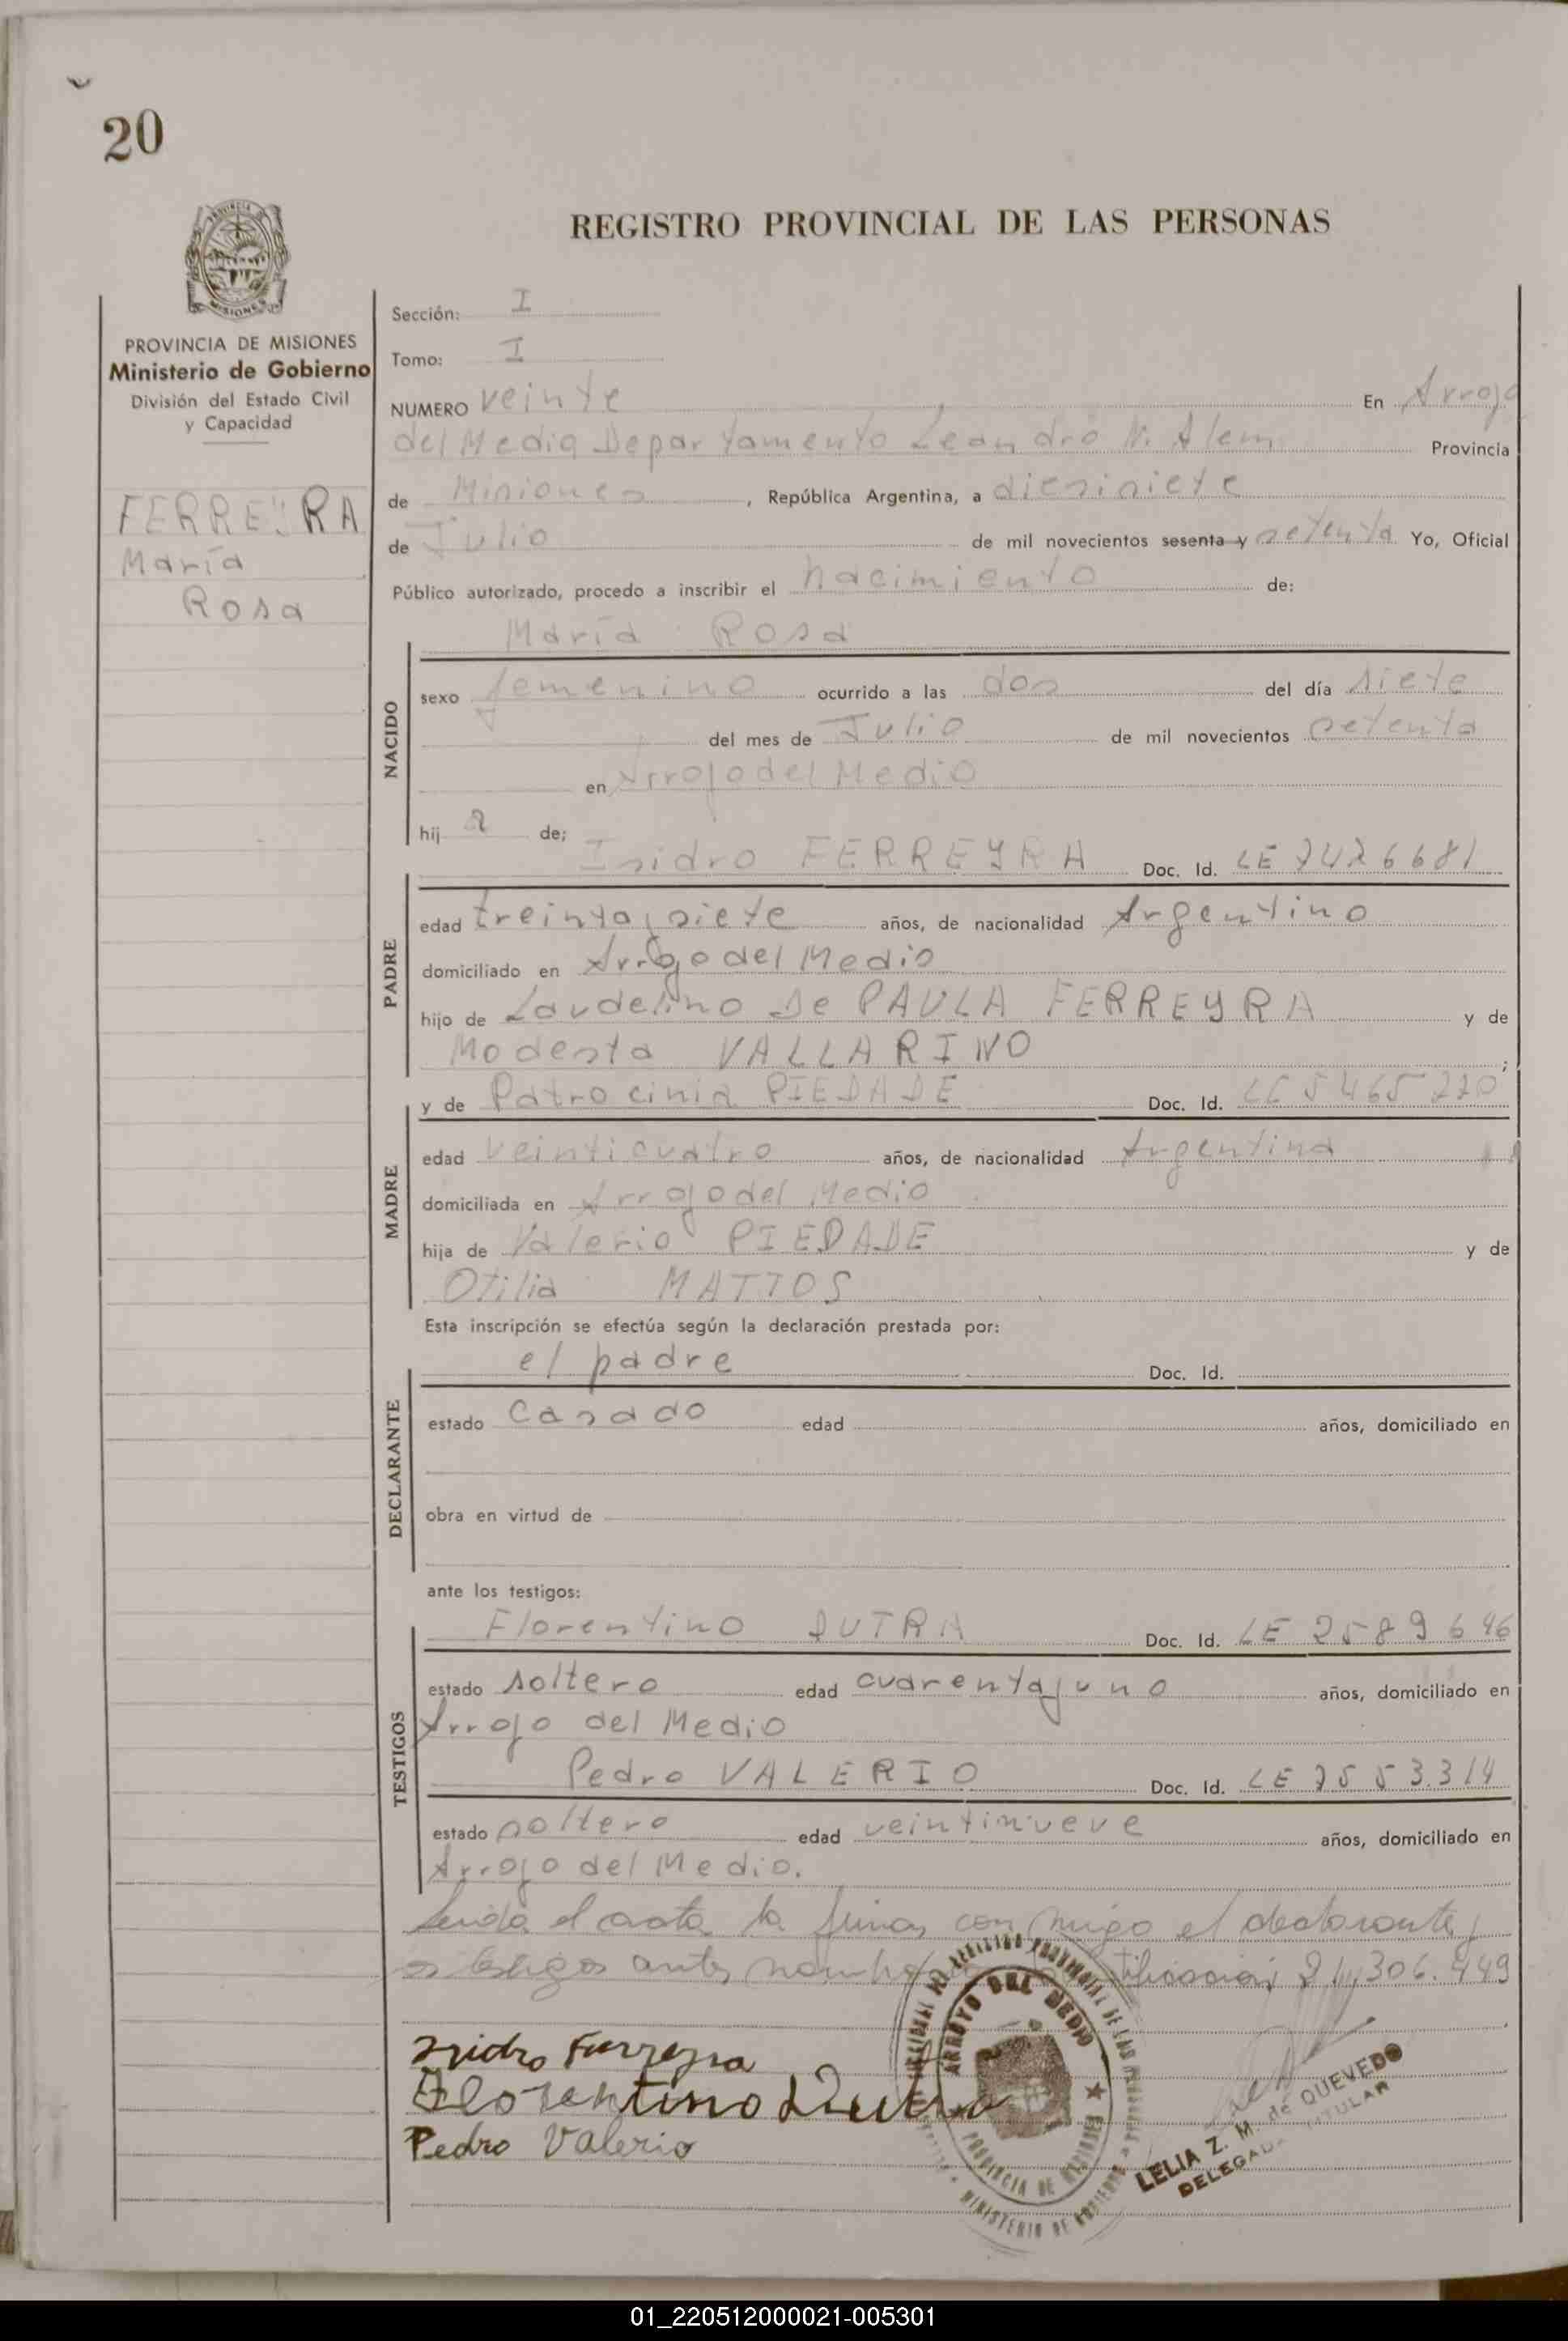 20
REGISTRO PROVINCIAL DE LAS PERSONAS
PROVINCIA DE MISIONES
Ministerio de Gobierno
División del Estado Civil
y Capacidad
FERREYRA
María
Rosa
Sección: I
Tomo: I
NUMERO veinte En Arroyo
del Medio Departamento Leandro N. Alem Provincia
de Misiones, República Argentina, a diesisiete
de Julio de mil novecientos sesenta y setenta Yo, Oficial
Público autorizado, procedo a inscribir el nacimiento de:
María Rosa
NACIDO
sexo femenino ocurrido a las dos del día siete
del mes de Julio de mil novecientos setenta
en Arroyo del Medio
hij a de:
Isidro FERREYRA Doc. Id. LE 7426681
PADRE
edad treinta y siete años, de nacionalidad Argentino
domiciliado en Arroyo del Medio
hijo de Laudelino De PAULA FERREYRA y de
Modesta VALLARINO ;
y de Patrocinia PIEDADE Doc. Id. LC 5465270
MADRE
edad veinticuatro años, de nacionalidad Argentina
domiciliada en Arroyo del Medio
hija de Valerio PIEDADE y de
Otilia MATTOS
Esta inscripción se efectúa según la declaración prestada por:
el padre Doc. Id.
DECLARANTE
estado Casado edad años, domiciliado en
obra en virtud de
ante los testigos:
Florentino DUTRA Doc. Id. LE 2589646
TESTIGOS
estado soltero edad cuarenta y uno años, domiciliado en
Arroyo del Medio
Pedro VALERIO Doc. Id. LE 7553.314
estado soltero edad veintinueve años, domiciliado en
Arroyo del Medio.
Leida el acta la firman conmigo el declarante y
os testigos antes 21,306.449
Isidro Ferreyra
Florentino Dutra
Pedro Valerio
ARROYO DEL MEDIO
PROVINCIA DE MISIONES
MINISTERIO DE GOBIERNO
LELIA Z. M. de QUEVEDO
DELEGADA TITULAR
01_220512000021-005301